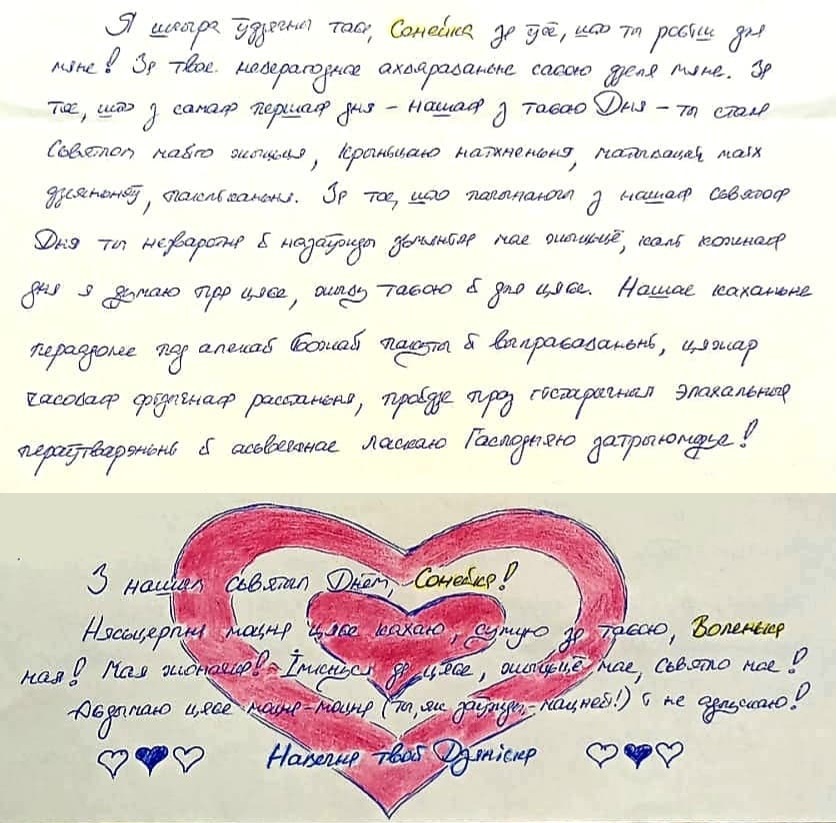 Я шчыра ўдзячны табе, Сонейка за ўсё, што ты робіш для
мяне! За тваё неверагоднае ахвяраваньне сабою дзеля мяне. За
тое, што з самага першага дня – нашага з табою Дня – ты стала
Сьвятлом майго жыцьця, крыніцаю натхненьня, матывацыяй маіх
дзеяньняў, паклікання. За тое, што пачынаючы з нашага Сьвятога
Дня ты незваротна й назаўжды зьмяніла маё жыцьцё, калі кожнага
дня я думаю пра цябе, жыву табою й для цябе. Нашае каханьне
пераадолее пад апекай Божай пакуты й выпрабаваньні, цяжар
часовага фізічнага расстаньня, пройдзе праз гістарычныя эпахальныя
ператварэньні й асьвечанае ласкаю Гасподняю затрыюмфуе!
З нашым сьвятам Днём, Сонейка!
Нясьцерпна моцна цябе кахаю, сумую за табою, Воленька
мая! Мая жонка! Імкнуся да цябе, жыцьцё маё, сьвятло маё!
Абдымаю цябе моцна-моцна (ты, як заўжды, – мацней!) і не адпускаю!
Навечна твой Дзяніска